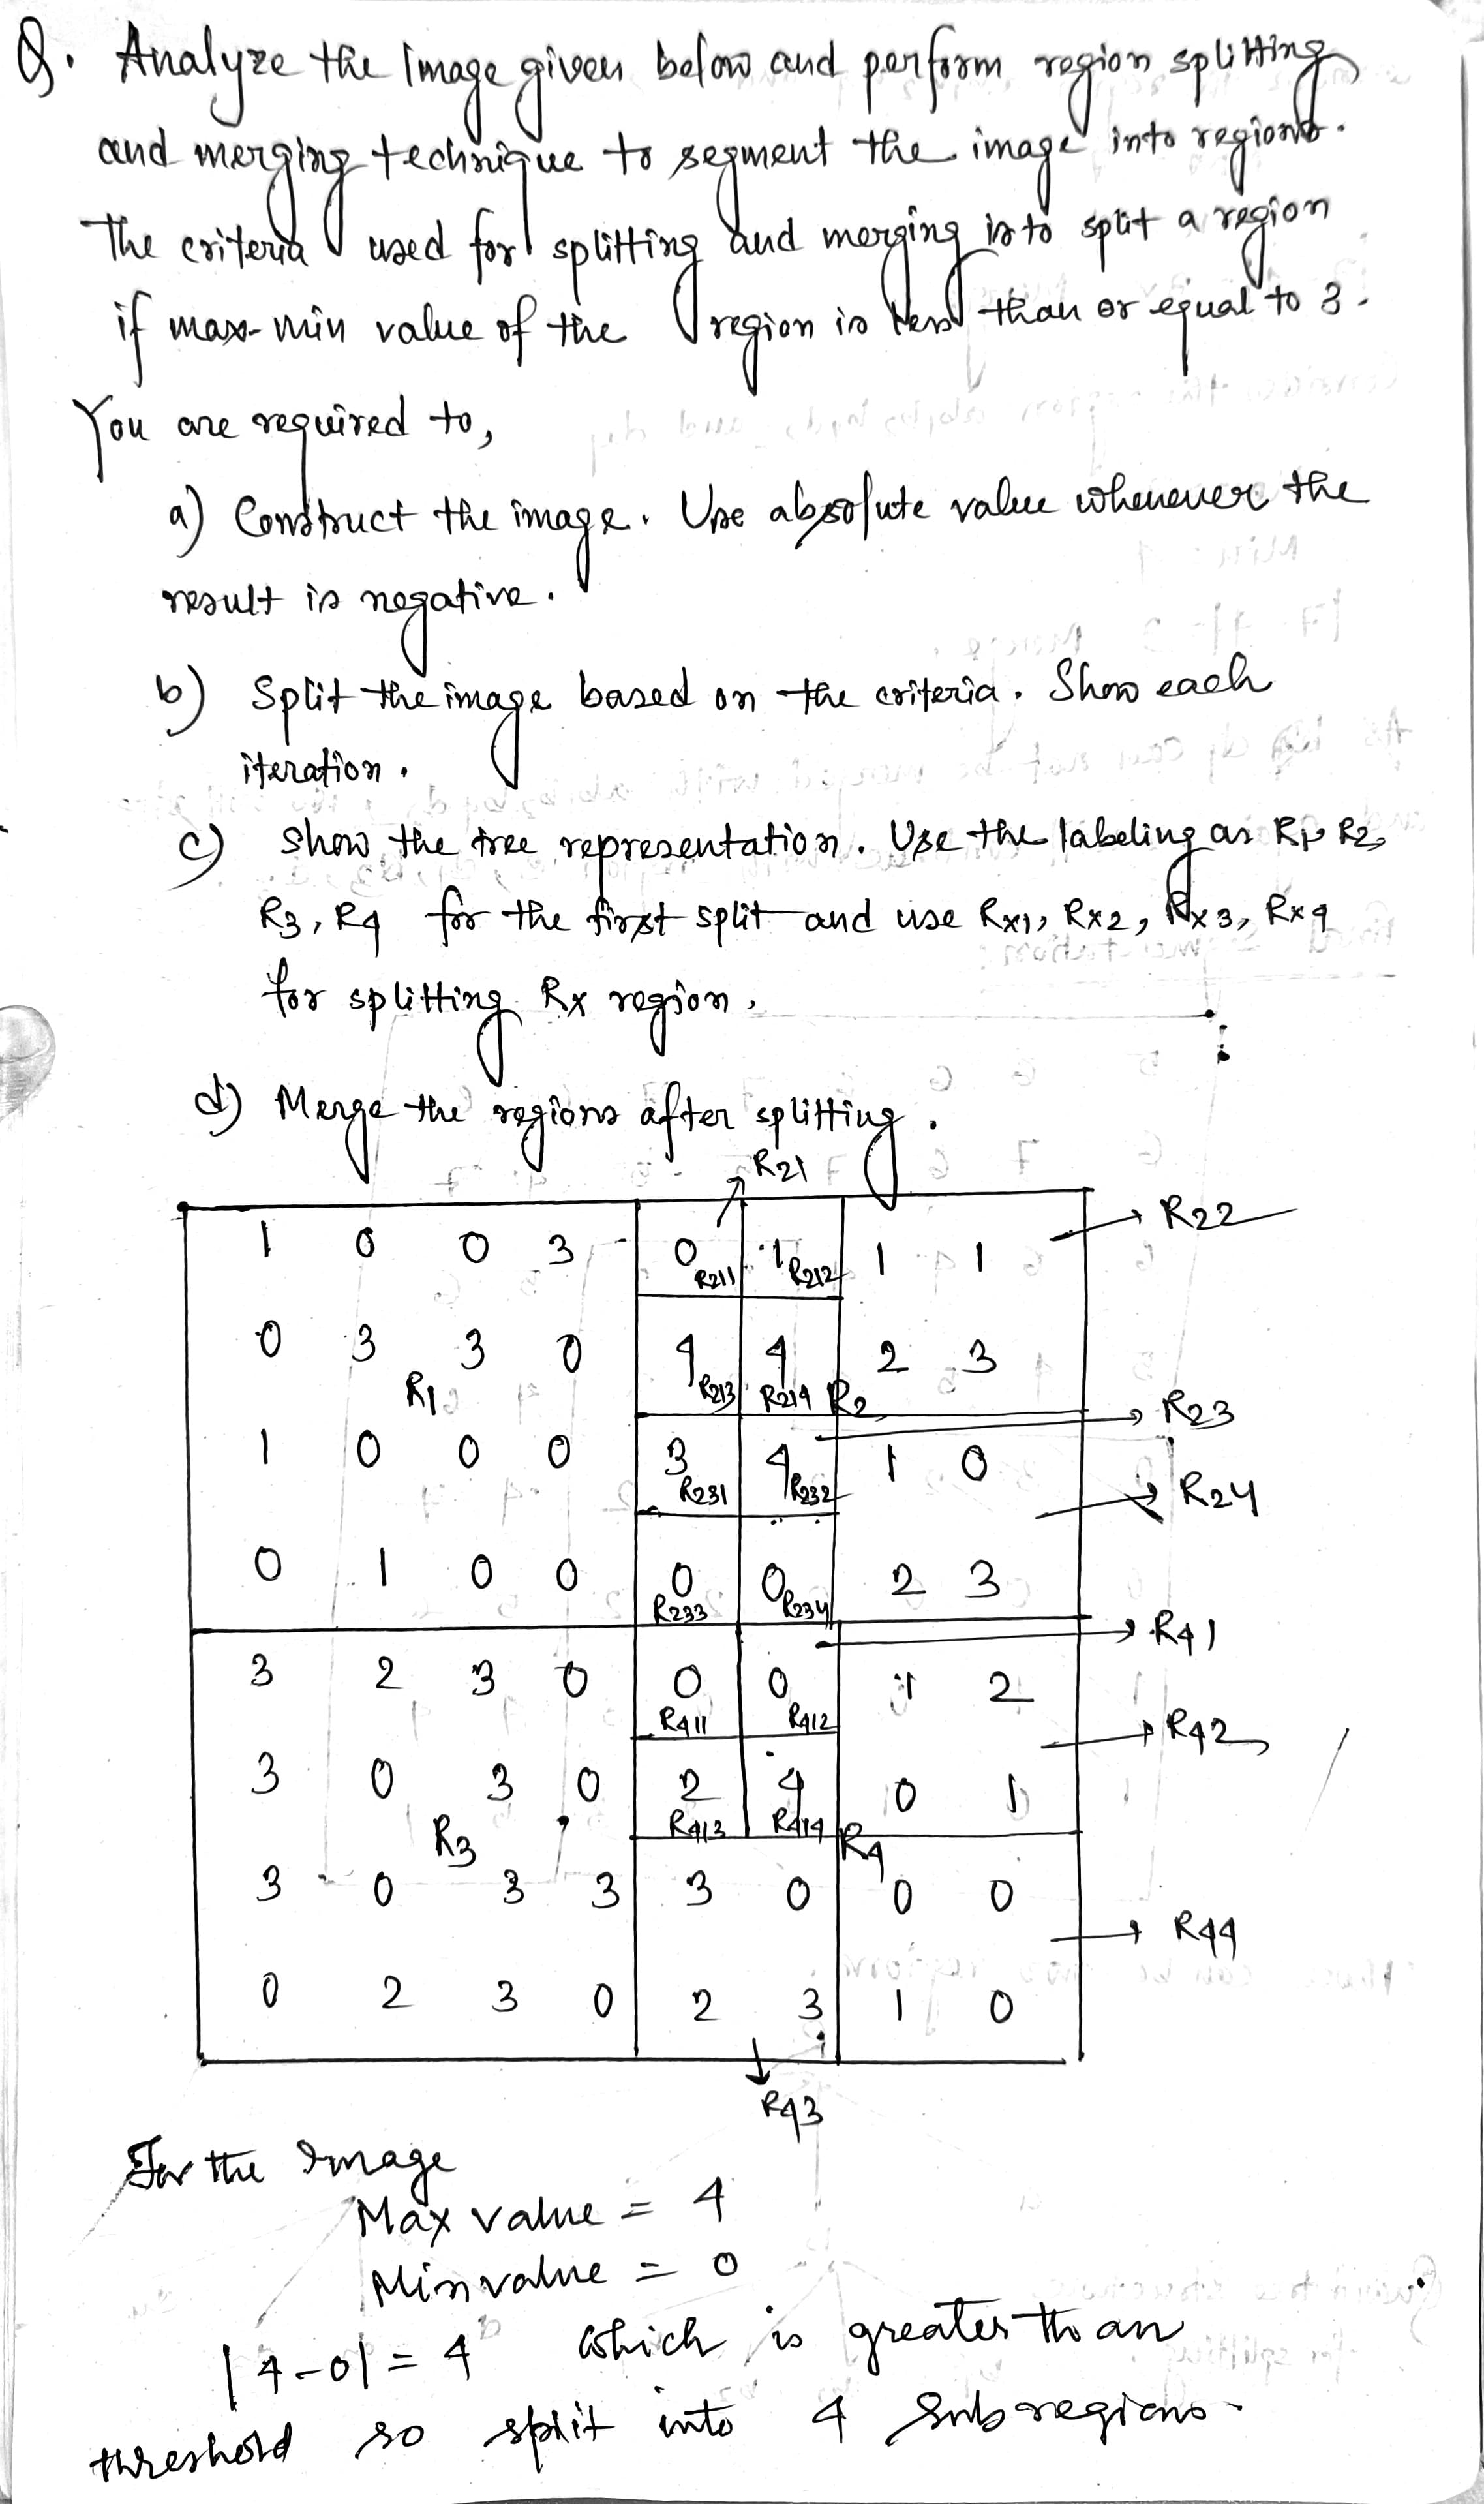 Q. Analyze the image given below and perform region splitting
and merging technique to segment the image into regions.
The criteria used for splitting and merging is to split a region
if max-min value of the region is less than or equal to 3.
You are required to,
a) Construct the image. Use absolute value whenever the
result is negative.
b) Split the image based on the criteria. Show each
iteration.
c) Show the tree representation. Use the labeling as R1, R2,
R3, R4 for the first split and use Rx1, Rx2, Rx3, Rx4
for splitting Rx region.
d) Merge the regions after splitting.
R21
1 0 0 3 0 1 1 1 R22
R211 R212
0 3 3 0 4 4 2 3
R1 R213 R214 R2
R23
1 0 0 0 3 4 1 0
R231 R232 R24
0 1 0 0 0 0 2 3
R233 R234
R41
3 2 3 0 0 0 1 2
R411 R412 R42
3 0 3 0 2 4 0 1
R3 R413 R414 R4
3 0 3 3 3 0 0 0
R44
0 2 3 0 2 3 1 0
R43
For the Image
Max value = 4
Min value = 0
|4-0| = 4 which is greater than
threshold so split into 4 Sub regions.